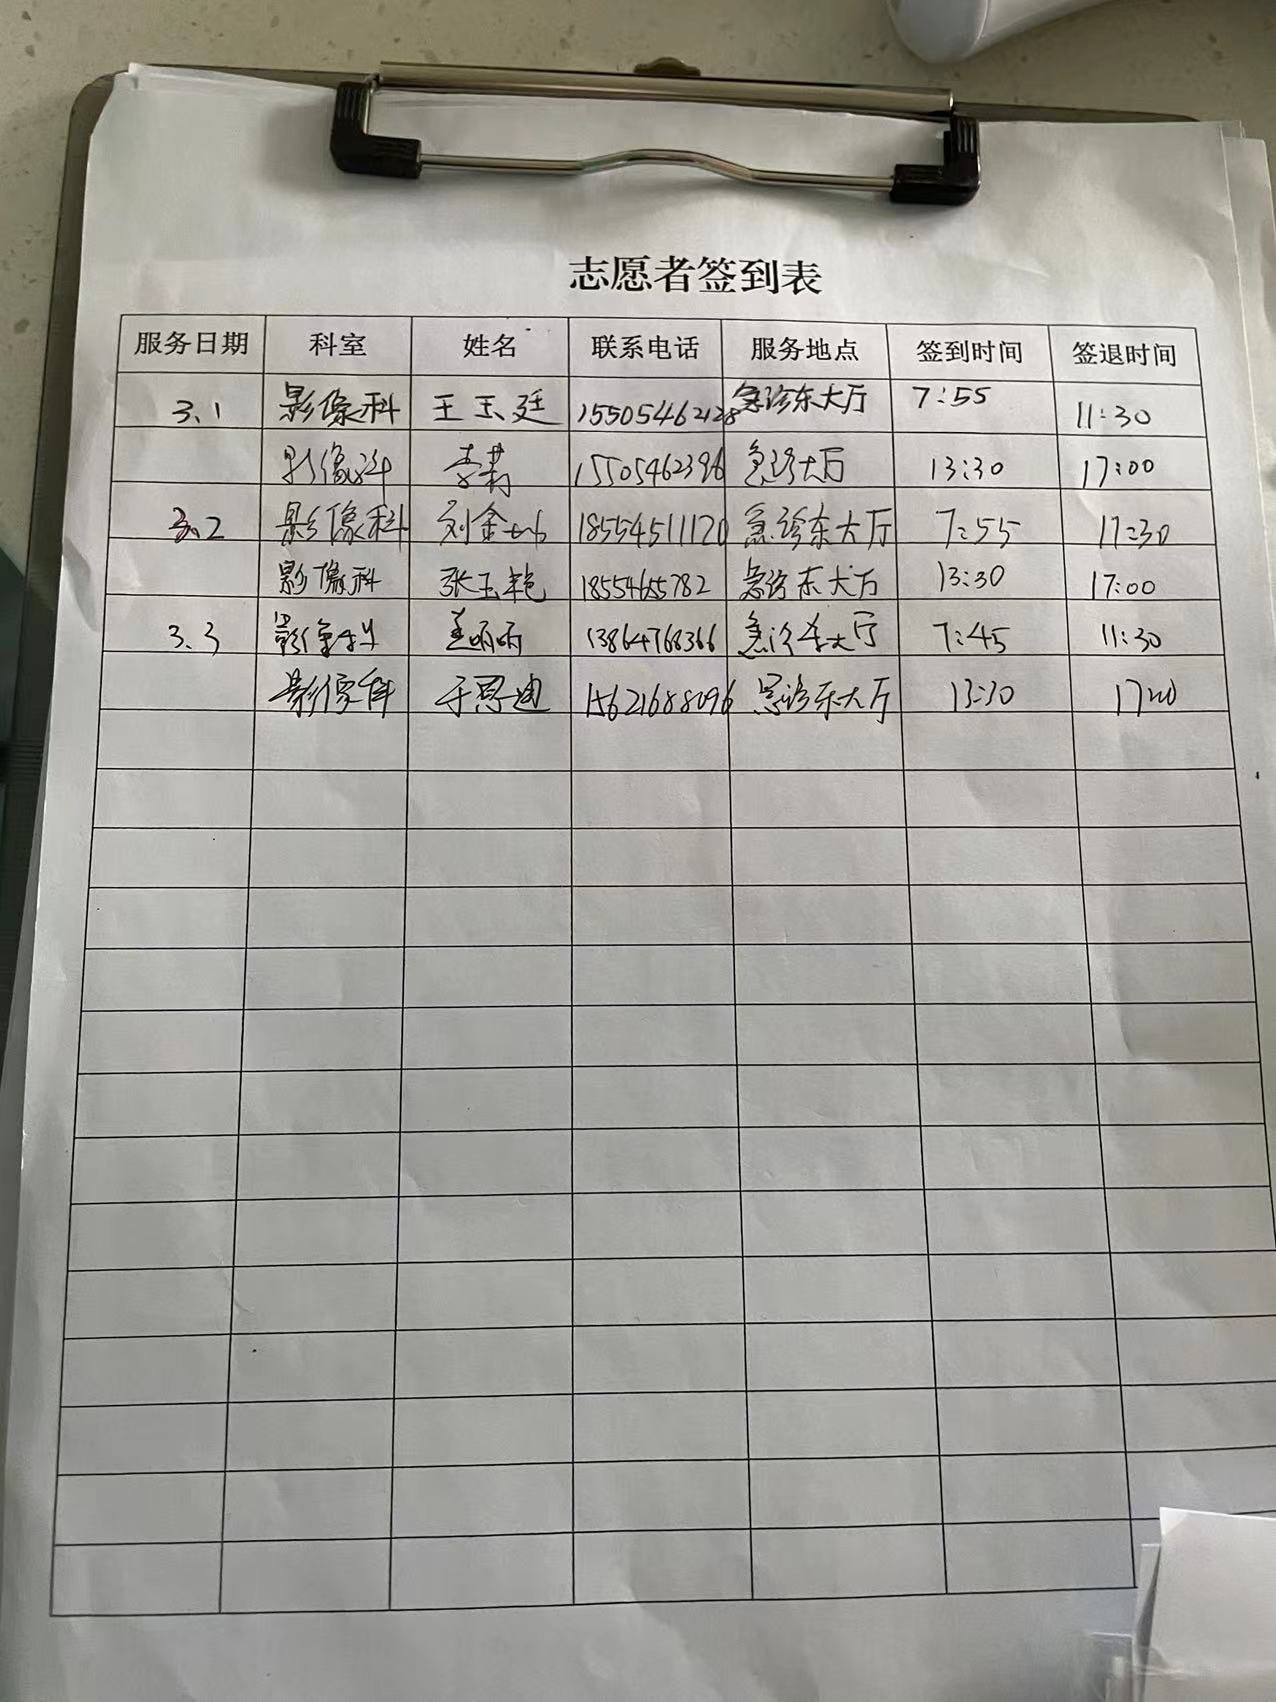 志愿者签到表
服务日期 科室 姓名 联系电话 服务地点 签到时间 签退时间
3.1 影像科 王玉廷 15505462128 急诊东大厅 7:55 11:30
影像科 李莉 15505462396 急诊大厅 13:30 17:00
3.2 影像科 刘金 18554511120 急诊东大厅 7:55 11:30
影像科 张玉艳 1855465782 急诊东大厅 13:30 17:00
3.3 影像科 丽丽 13864768366 急诊东大厅 7:45 11:30
影像科 于恩迪 15621688096 急诊东大厅 13:30 1700